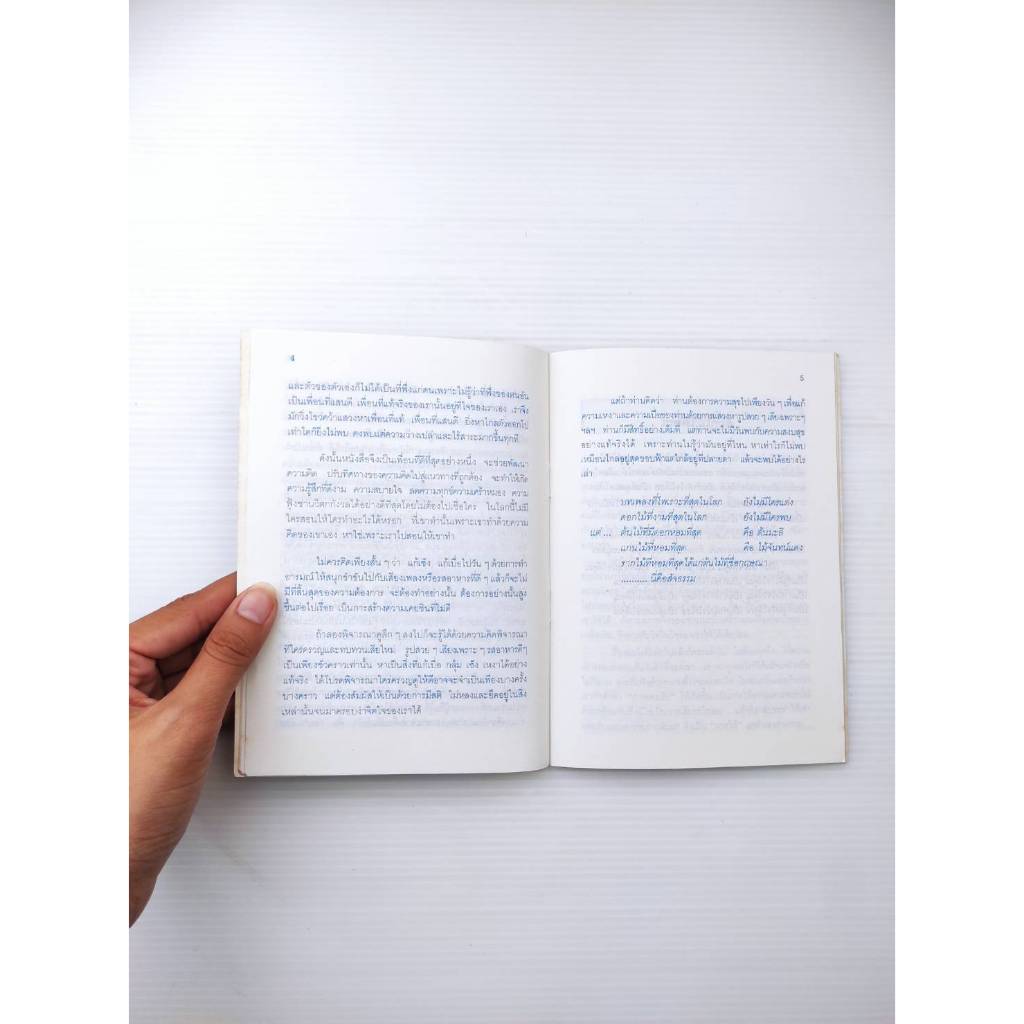 4
และตัวของตัวเองก็ไม่ได้เป็นที่พึ่งแก่ตนเพราะไม่รู้ว่าที่พึ่งของตนอัน
เป็นเพื่อนที่แสนดี เพื่อนที่แท้จริงของเรานั้นอยู่ที่ใจของเราเอง เราจึง
มักวิ่งไขว่คว้าแสวงหาเพื่อนที่แท้ เพื่อนที่แสนดี ยิ่งหาไกลตัวออกไป
เท่าใดก็ยิ่งไม่พบ คงพบแต่ความว่างเปล่าและไร้สาระมากขึ้นทุกที
ดังนั้นหนังสือจึงเป็นเพื่อนที่ดีที่สุดอย่างหนึ่ง จะช่วยพัฒนา
ความคิด ปรับทิศทางของความคิดไปสู่แนวทางที่ถูกต้อง จะทำให้เกิด
ความรู้สึกที่ดีงาม ความสบายใจ ลดความทุกข์ความเศร้าหมอง ความ
ฟุ้งซ่านวิตกกังวลได้อย่างดีที่สุดโดยไม่ต้องไปเชื่อใคร ในโลกนี้ไม่มี
ใครสอนให้ใครทำอะไรได้หรอก ที่เขาทำนั้นเพราะเขาทำด้วยความ
คิดของเขาเอง หาใช่เพราะเราไปสอนให้เขาทำ
ไม่ควรคิดเพียงสั้น ๆ ว่า แก้เซ็ง แก้เบื่อไปวัน ๆ ด้วยการทำ
อารมณ์ให้สนุกสำชันไปกับเสียงเพลงหรือรสอาหารที่ดี ๆ แล้วก็จะไม่
มีที่สิ้นสุดของความต้องการ จะต้องทำอย่างนั้น ต้องการอย่างนั้นสูง
ขึ้นต่อไปเรื่อย เป็นการสร้างความเคยชินที่ไม่ดี
ถ้าลองพิจารณาดูลึก ๆ ลงไปก็จะรู้ได้ด้วยความคิดพิจารณา
ที่ใคร่ครวญและทบทวนเสียใหม่ รูปสวย ๆ เสียงเพราะ ๆ รสอาหารดีๆ
เป็นเพียงชั่วคราวเท่านั้น หาเป็นสิ่งที่แก้เบื่อ กลุ้ม เซ็ง เหงาได้อย่าง
แท้จริง ได้โปรดพิจารณาใคร่ครวญดูให้ดีอาจจะจำเป็นเพียงบางครั้ง
บางคราว แต่ต้องสัมผัสให้เป็นด้วยการมีสติ ไม่หลงและยึดอยู่ในสิ่ง
เหล่านั้นจนมาครอบงำจิตใจของเราได้
5
แต่ถ้าท่านคิดว่า ท่านต้องการความสุขไปเพียงวัน ๆ เพื่อแก้
ความเหงาและความเบื่อของท่านด้วยการแสวงหารูปสวย ๆ เสียงเพราะๆ
ฯลฯ ท่านก็มีสิทธิ์อย่างเต็มที่ แต่ท่านจะไม่มีวันพบกับความสงบสุข
อย่างแท้จริงได้ เพราะท่านไม่รู้ว่ามันอยู่ที่ไหน หาเท่าไรก็ไม่พบ
เหมือนไกลอยู่สุดขอบฟ้าแต่ใกล้อยู่ที่ปลายตา แล้วจะพบได้อย่างไร
เล่า
บทเพลงที่ไพเราะที่สุดในโลก ยังไม่มีใครแต่ง
ดอกไม้ที่งามที่สุดในโลก ยังไม่มีใครพบ
แต่ ... ต้นไม้ที่มีดอกหอมที่สุด คือ ต้นมะลิ
แก่นไม้ที่หอมที่สุด คือ ไม้จันทน์แดง
รากไม้ที่หอมที่สุดได้แก่ต้นไม้ที่ชื่อกฤษณา
.......... นี่คือสัจธรรม